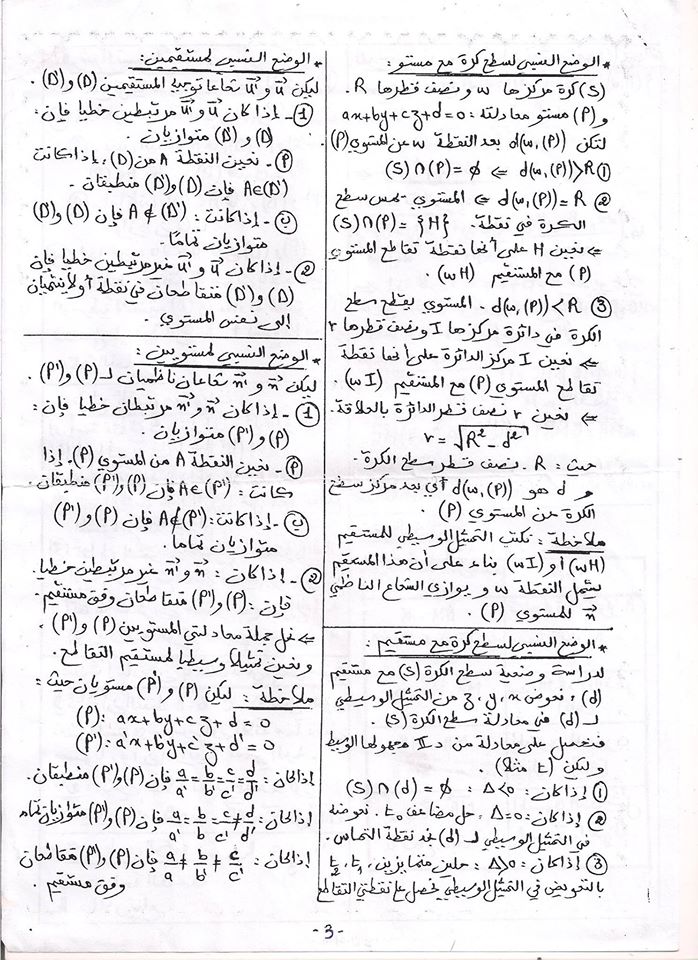 * الوضع النسبي لسطح كرة مع مستو :
(S) كرة مركزها w و نصف قطرها R.
و (P) مستو معادلته : ax+by+cz+d=0
لتكن d(w,(P)) بعد النقطة w عن المستوي (P)
① d(w,(P))>R ⇐ (S)∩(P)=ϕ
② d(w,(P))=R ⇐ المستوي يمس سطح
الكرة في نقطة. (S)∩(P)={H}
⇐ نعين H على أنها نقطة تقاطع المستوي
(P) مع المستقيم (wH).
③ d(w,(P))<R. المستوي يقطع سطح
الكرة في دائرة مركزها I ونصف قطرها r
⇐ نعين I مركز الدائرة على أنها نقطة
تقاطع المستوي (P) مع المستقيم (wI).
⇐ نعين r نصف قطر الدائرة بالعلاقة.
r = √R² - d²
حيث : R. نصف قطر سطح الكرة.
و d هو d(w,(P)) أي بعد مركز سطح
الكرة عن المستوي (P).
ملاحظة : نكتب التمثيل الوسيطي للمستقيم
(wH) أو (wI) بناء على أن هذا المستقيم
يشمل النقطة w و يوازي الشعاع الناظمي
n⃗ للمستوي (P).
* الوضع النسبي لسطح كرة مع مستقيم :
لدراسة وضعية سطح الكرة (S) مع مستقيم
(d)، نعوض x, y, z من التمثيل الوسيطي
لـ (d) في معادلة سطح الكرة (S).
فنحصل على معادلة من د II مجهولها الوسيط
و ليكن (t مثلا).
① إذا كان : Δ<0 : (S)∩(d)=ϕ
② إذا كان : Δ=0، حل مضاعف t₀. نعوضه
في التمثيل الوسيطي لـ (d) نجد نقطة التماس.
③ إذا كان : Δ>0 : حلين متمايزين t₁, t₂
بالتعويض في التمثيل الوسيطي نحصل على نقطتي التقاطع
* الوضع النسبي لمستقيمين :
ليكن u⃗ و u⃗' شعاعا توجيه المستقيمين (D) و (D').
①- إذا كان u⃗ و u⃗' مرتبطين خطيا فإن :
(D) و (D') متوازيان.
أ- نعين النقطة A من (D)، إذا كانت
A∈(D') فإن (D) و (D') منطبقان.
ب- إذا كانت : A∉(D') فإن (D) و (D')
متوازيان تماما.
②- إذا كان u⃗ و u⃗' غير مرتبطين خطيا فإن
(D) و (D') متقاطعان في نقطة أو لا ينتميان
إلى نفس المستوي.
* الوضع النسبي لمستويين :
ليكن n⃗ و n⃗' شعاعان ناظميان لـ (P) و (P').
①- إذا كان n⃗ و n⃗' مرتبطان خطيا فإن :
(P) و (P') متوازيان.
أ- نعين النقطة A من المستوي (P). إذا
كانت : A∈(P') فإن (P) و (P') منطبقان.
ب- إذا كانت : A∉(P') فإن (P) و (P')
متوازيان تماما.
②- إذا كان : n⃗ و n⃗' غير مرتبطين خطيا
فإن : (P) و (P') متقاطعان وفق مستقيم.
⇐ نحل جملة معادلتي المستويين (P) و (P')،
و نعين تمثيلا وسيطيا لمستقيم التقاطع.
ملاحظة : ليكن (P) و (P') مستويان حيث :
(P): ax+by+cz+d=0
(P'): a'x+b'y+c'z+d'=0
إذا كان : a/a' = b/b' = c/c' = d/d' فإن (P) و (P') منطبقان.
إذا كان : a/a' = b/b' = c/c' ≠ d/d' فإن (P) و (P') متوازيان تماما
إذا كان : a/a' ≠ b/b' ≠ c/c' فإن (P) و (P') متقاطعان
وفق مستقيم.
-3-